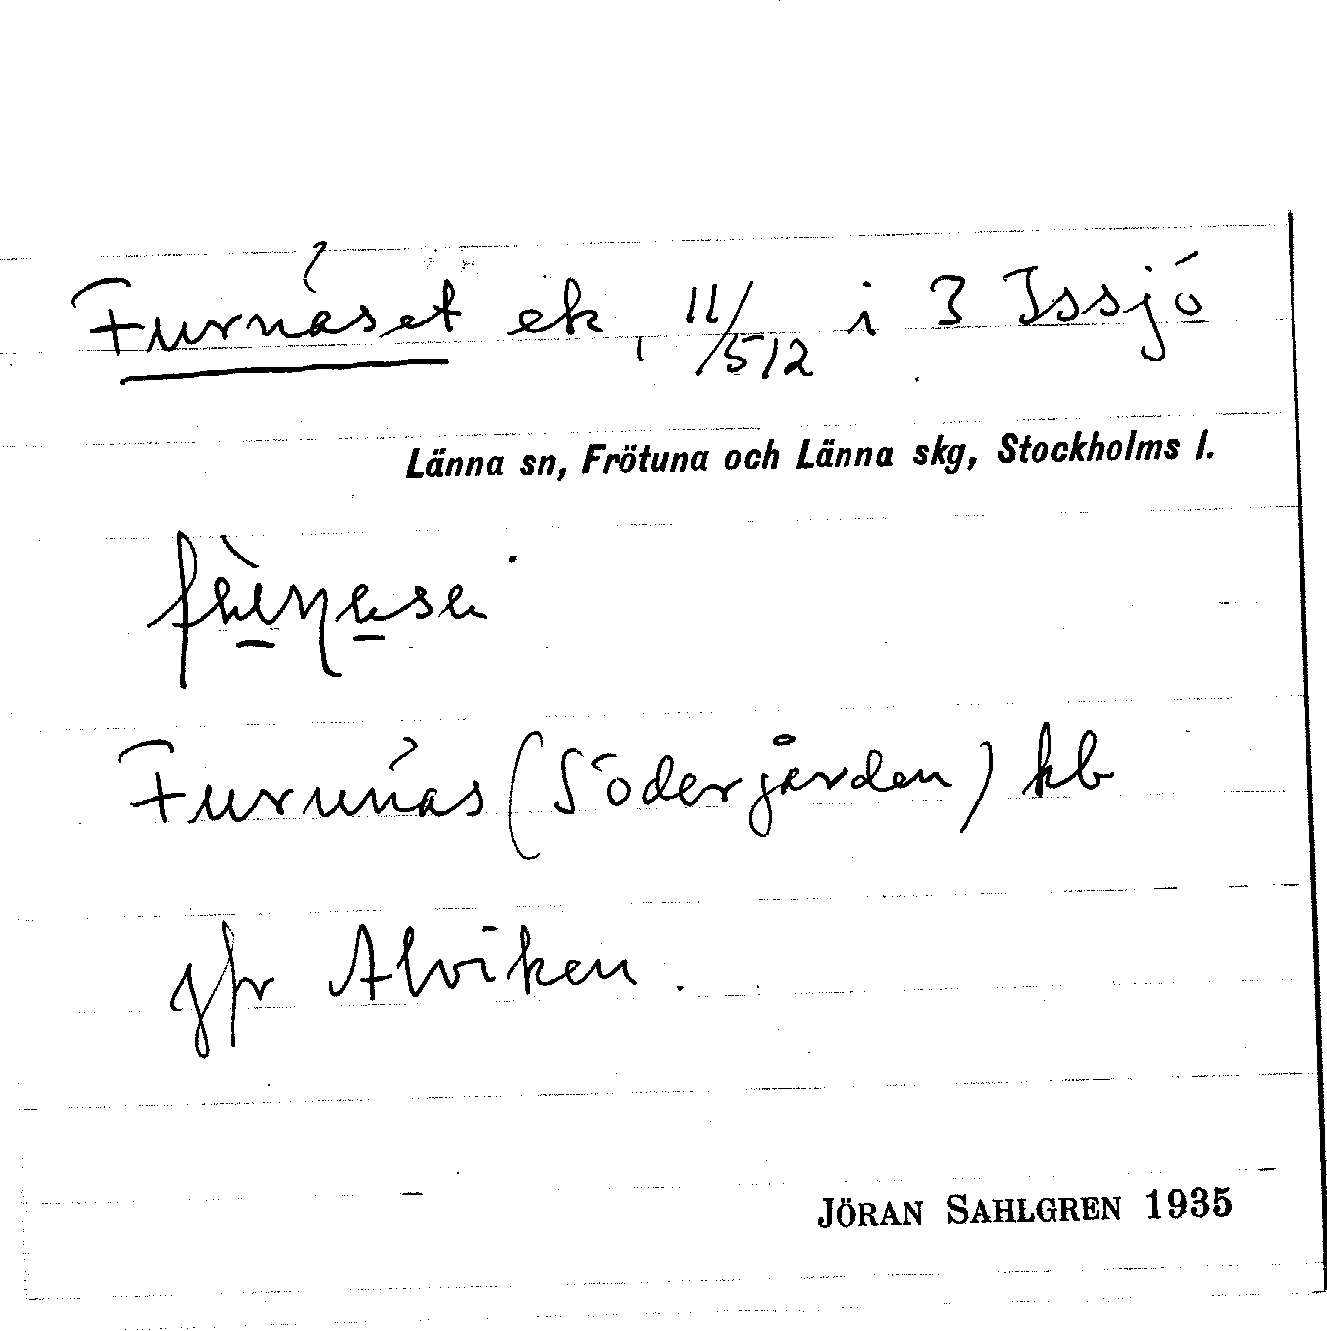 Furnäset ek, 11/512 i 3 Issjö
Länna sn, Frötuna och Länna skg, Stockholms l.
Furunäs (Södergården) kb
jfr Alviken.
JÖRAN SAHLGREN 1935